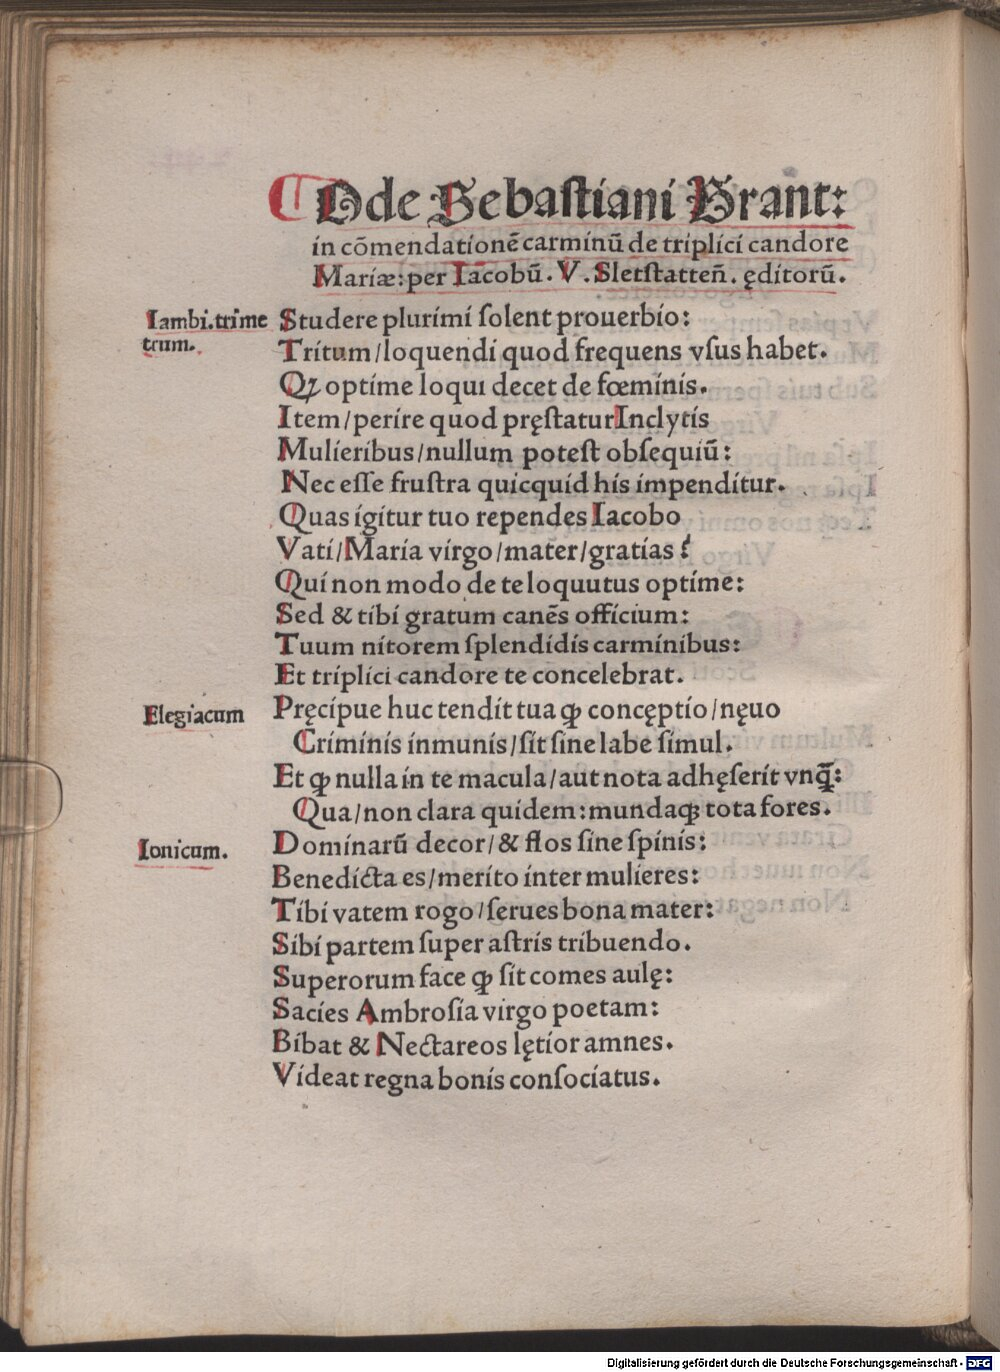 Ode Sebaſtiani Brant:
in cõmendationẽ carminũ de triplici candore
Mariæ: per Iacobũ. V. Sletſtatteñ. ęditorũ.
Iambi. trime
trum.
Studere plurimi ſolent prouerbio:
Tritum/ loquendi quod frequens vſus habet.
Qꝫ optime loqui decet de fœminis.
Item/ perire quod pręſtatur Inclytis
Mulieribus/ nullum poteſt obſequiũ:
Nec eſſe fruſtra quicquid his impenditur.
Quas igitur tuo rependes Iacobo
Vati/ Maria virgo/ mater/ gratias?
Qui non modo de te loquutus optime:
Sed & tibi gratum canẽs officium:
Tuum nitorem ſplendidis carminibus:
Et triplici candore te concelebrat.
Elegiacum
Pręcipue huc tendit tua ꝙ concęptio/ nęuo
Criminis inmunis/ ſit ſine labe ſimul.
Et ꝙ nulla in te macula/ aut nota adhęſerit vnq̃:
Qua/ non clara quidem: mundaqꝫ tota fores.
Ionicum.
Dominarũ decor/ & flos ſine ſpinis:
Benedicta es/ merito inter mulieres:
Tibi vatem rogo/ ſerues bona mater:
Sibi partem ſuper aſtris tribuendo.
Superorum face ꝙ ſit comes aulę:
Sacies Ambroſia virgo poetam:
Bibat & Nectareos lętior amnes.
Videat regna bonis conſociatus.
Digitalisierung gefördert durch die Deutsche Forschungsgemeinschaft - DFG